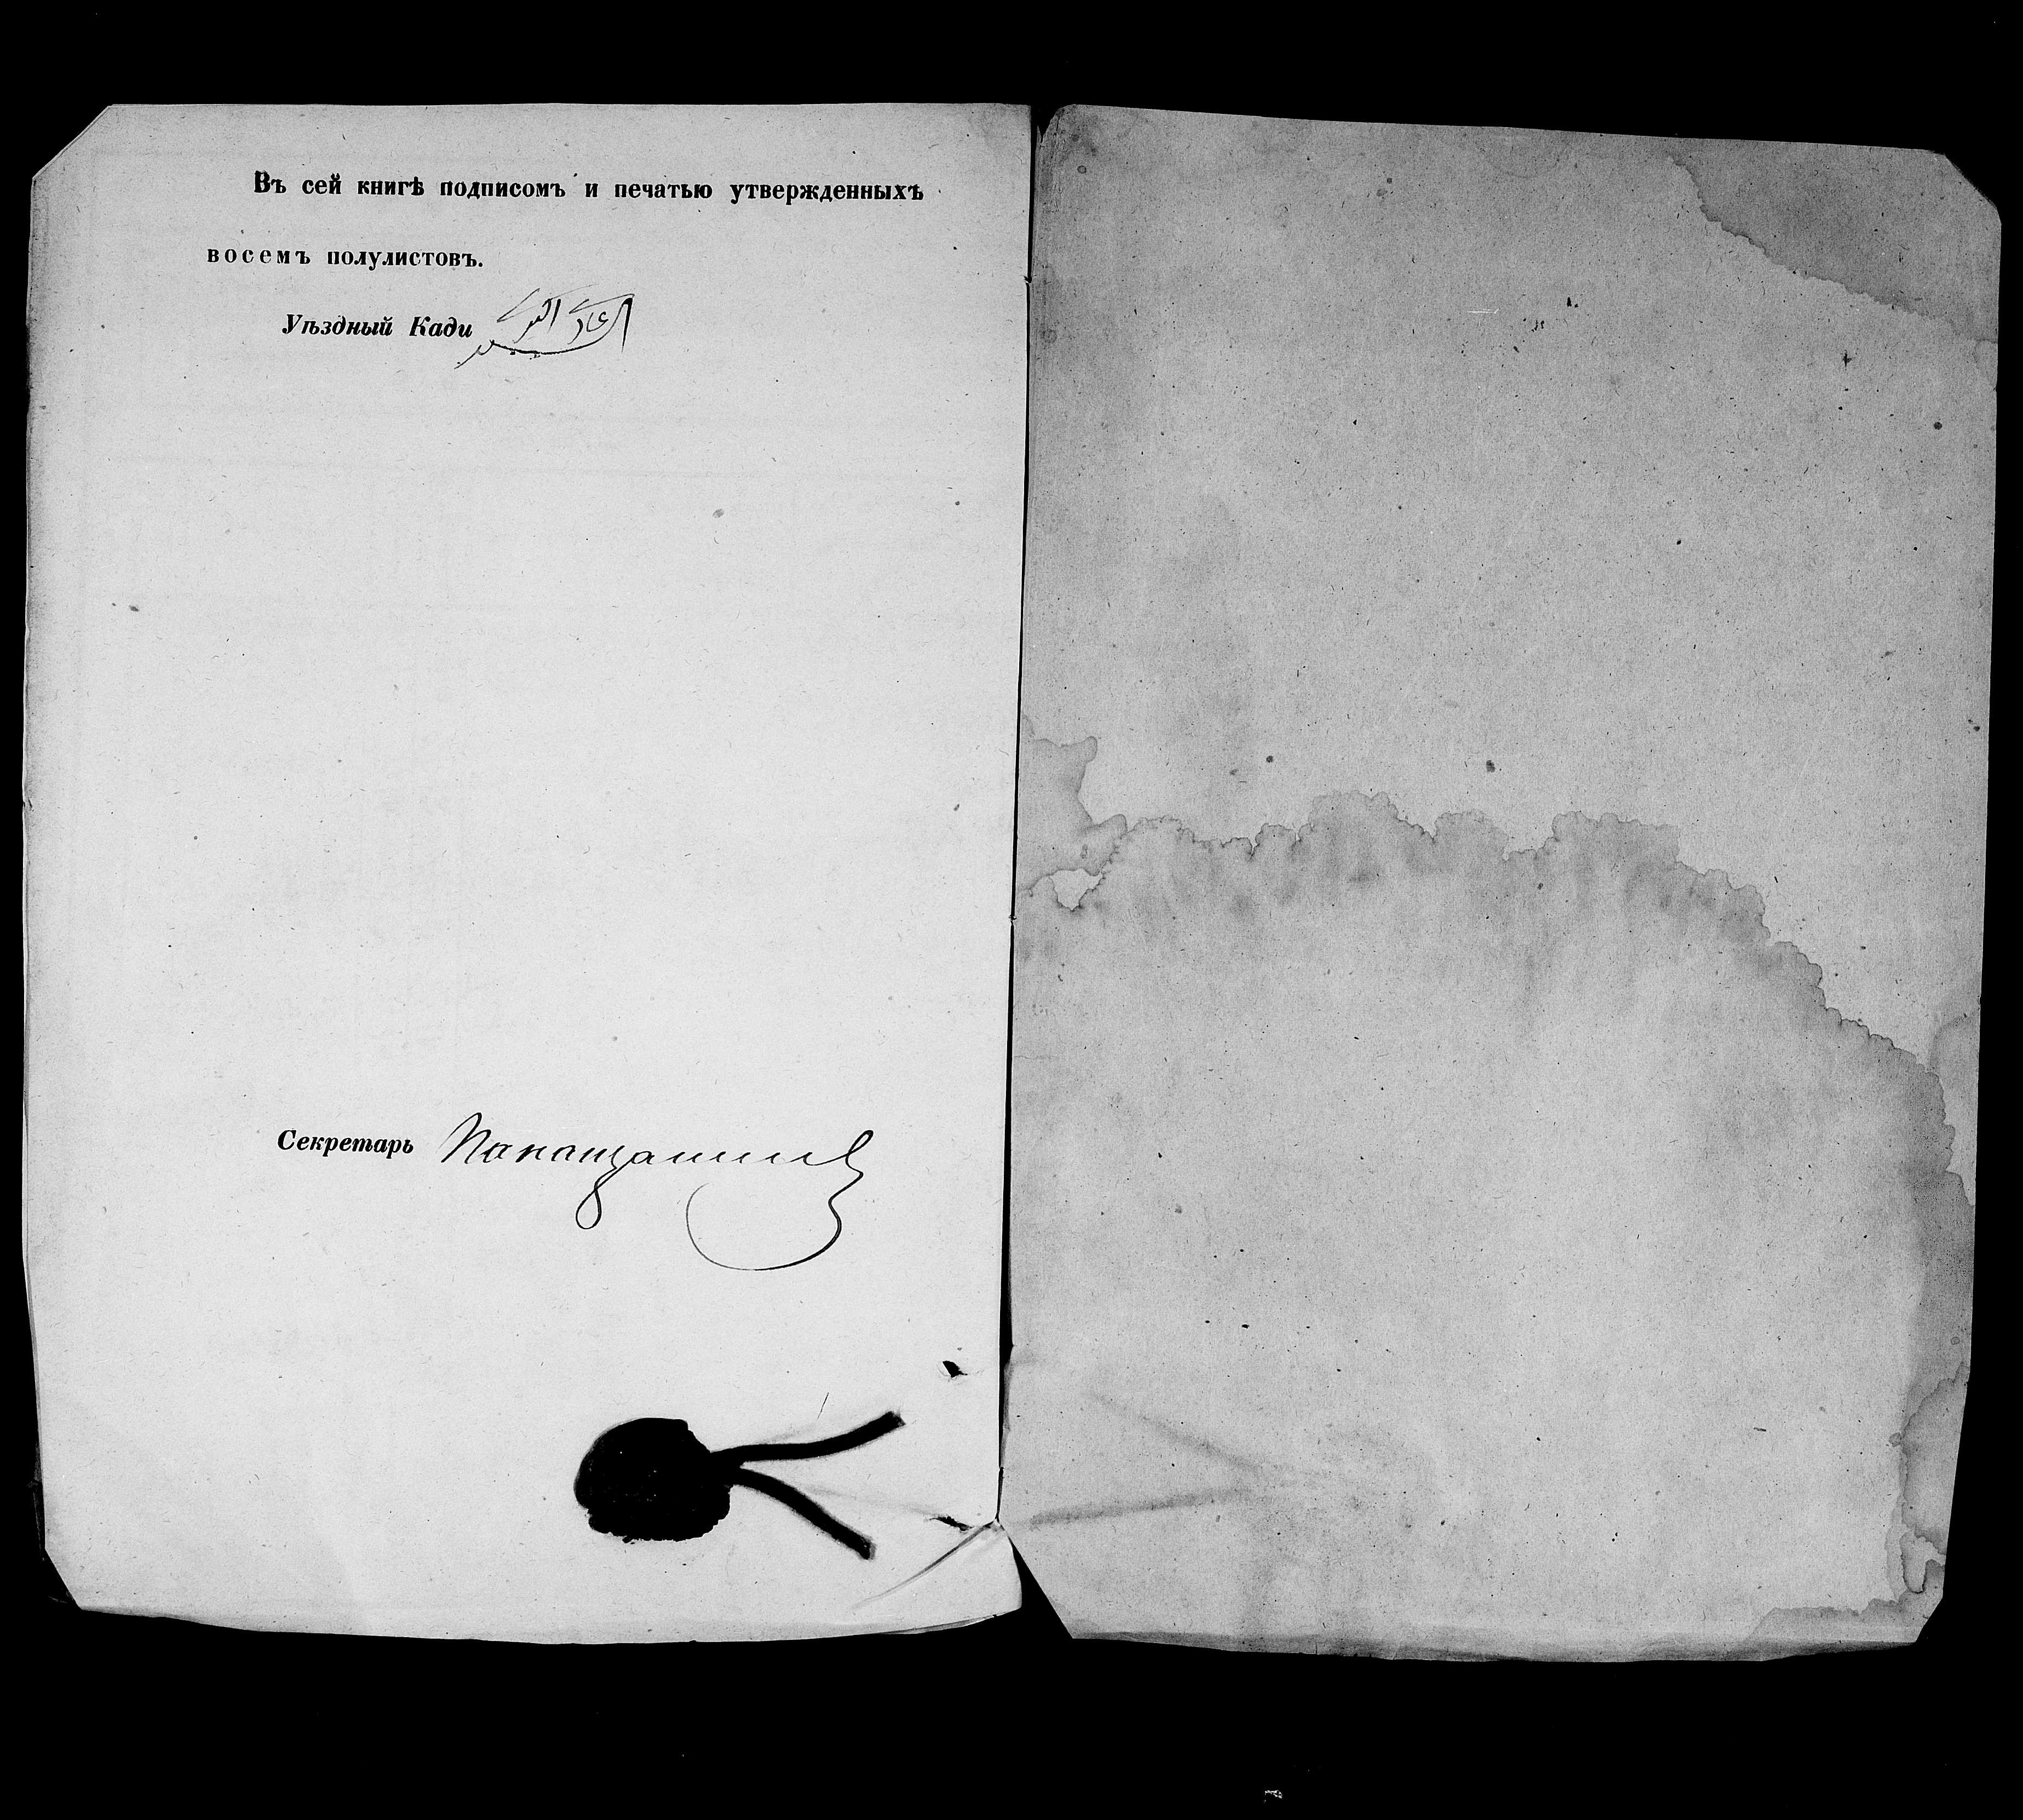 Въ сей книгѣ подписомъ и печатью утвержденныхъ
восемъ полулистовъ.
Уѣздный Кади
Секретарь